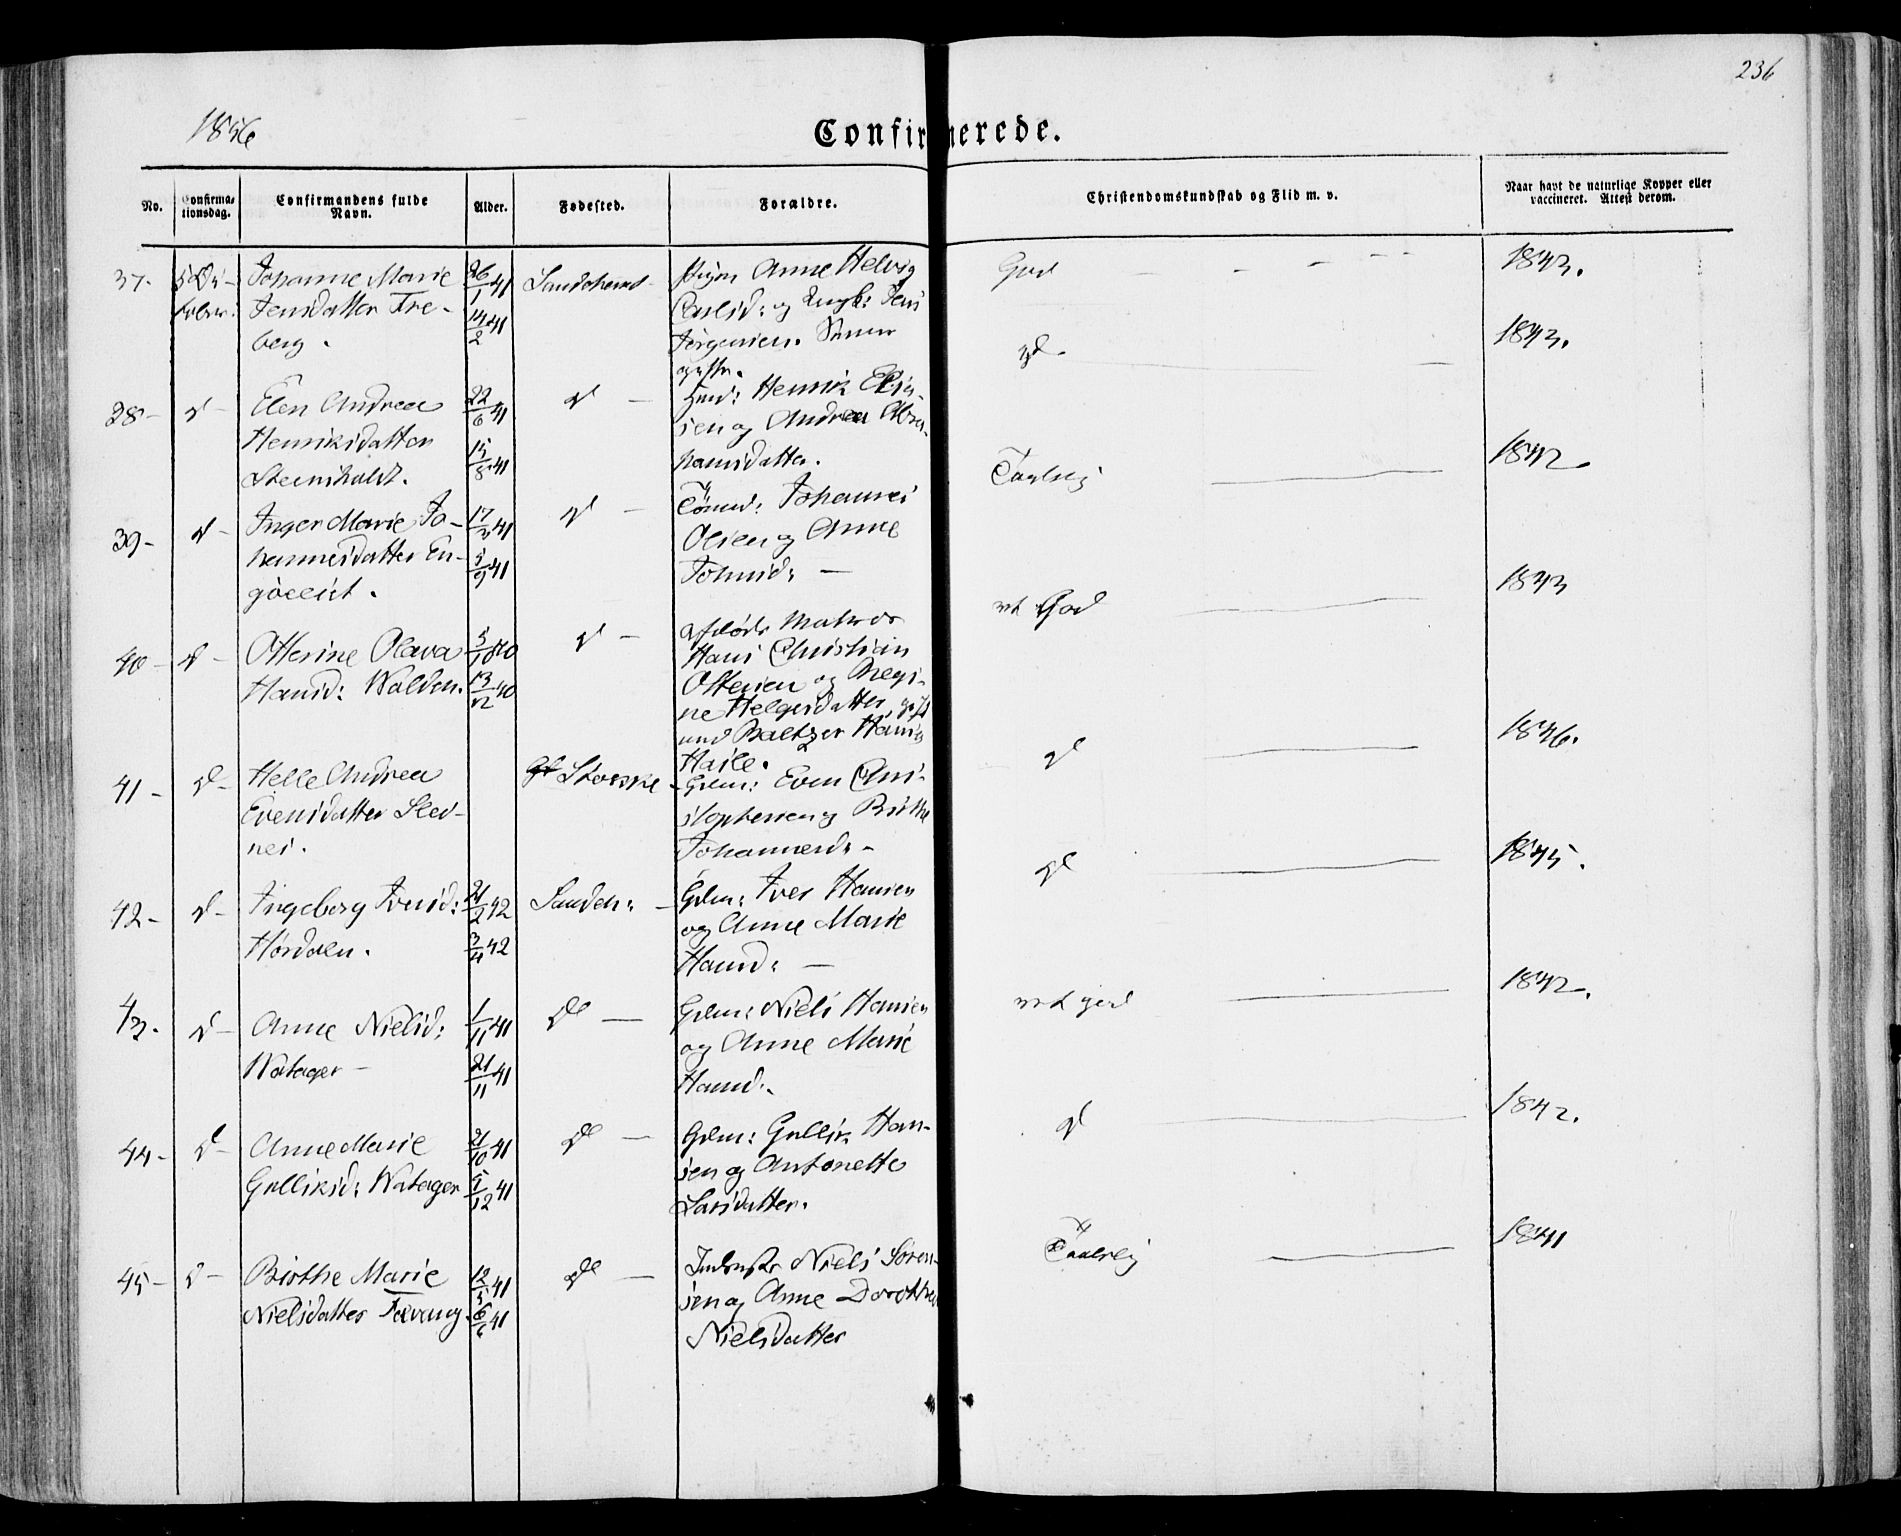 236
1856
Confirmerede.
No.
Confirma-
tionsdag.
Confirmandens fulde
Navn.
Alder.
Fødested.
Forældre.
Christendomskundskab og Flid m. v.
Naar havt de naturlige Kopper eller
vaccineret. Attest derom.
37.
5 Oc-
tober.
Johanne Marie
Jensdatter Fre-
berg.
26/1 41
14/2 41
Sandeherred
Pigen Anne Helvig
Carlsd: og Ungk: Jens
Jørgensen.
God
1843.
38 -
d -
Elen Andrea
Henriksdatter
Steensholdt.
22/6 41
15/8 41
d -
Huusm: Henrik Elia-
sen og Andrea Abra-
hamsdatter.
d
1843.
39 -
d -
Inger Marie Jo-
hannesdatter En-
gøeeiet.
17/3 41
5/9 41
d -
Tømm: Johannes
Olsen og Anne
Johnsd: -
Taalelig
1842
40 -
d -
Otterine Olava
Hansd: Walden.
5/10 40
13/12 40
d -
afdøde Matros
Hans Christian
Ottersen og Regi-
ne Helgesdatter, gift
med Baltzer Hansen
mt God
1843
41 -
d -
Helle Andrea
Evensdatter Sled-
nes.
Stokke
Gdm: Even Chri-
stophersen og Birthe
Johannesd: -
d
1846.
42 -
d -
Ingeborg Iversd:
Hørdalen.
21/2 42
3/4 42
Sandeh: -
Gdm: Iver Hansen
og Anne Marie
Hansd: -
d
1845.
43.
d -
Anne Nielsd:
Watager -
1/11 41
21/11 41
d -
Gdm: Niels Hansen
og Anne Marie
Hansd.
mt god
1842.
44 -
d -
Anne Marie
Gulliksd: Watager
21/10 41
5/12 41
d -
Gdm: Gullik Han-
sen og Antonette
Larsdatter.
d
1842.
45 -
d -
Birthe Marie
Nielsdatter Fevang.
12/5 41
6/6 41
d -
Inderster Niels Søren-
sen og Anne Dorothea
Nielsdatter
Taalelig
1841